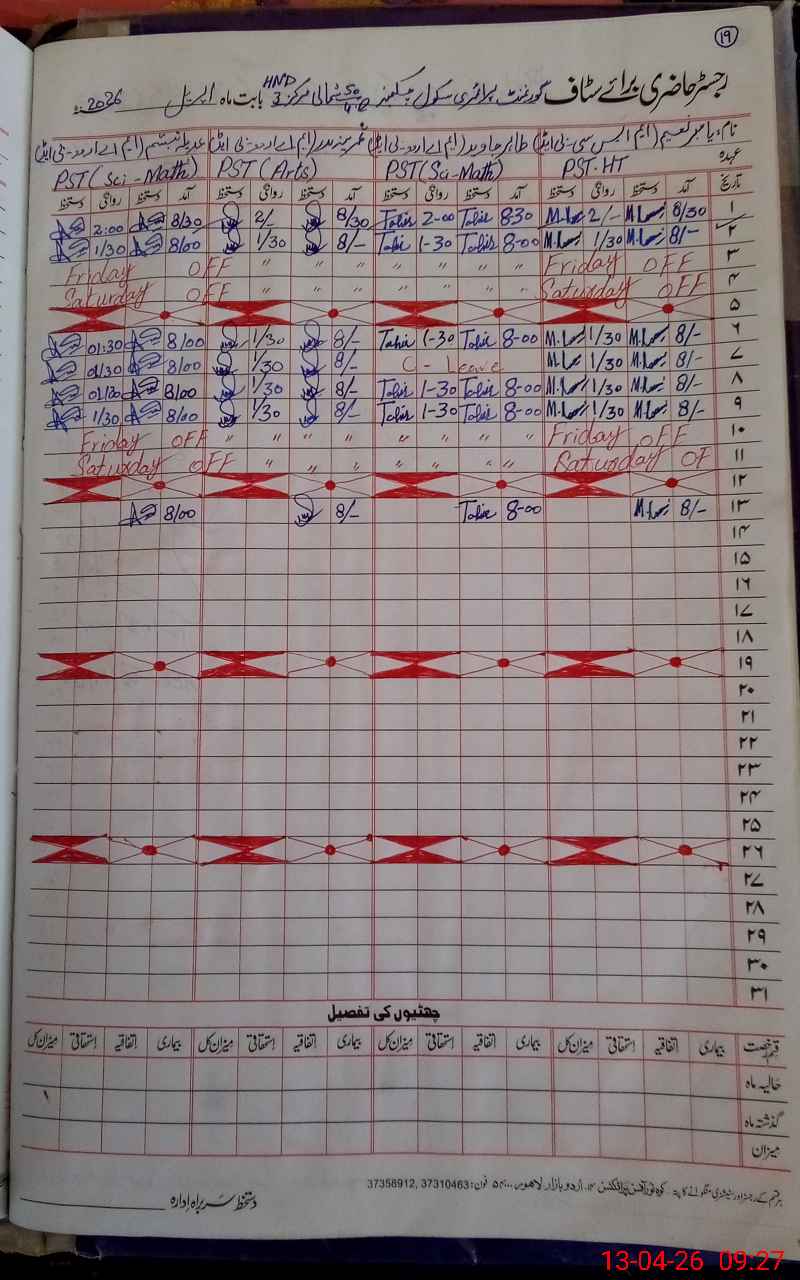 ۱۹
رجسٹر حاضری برائے سٹاف گورنمنٹ پرائمری سکول شمالی مرکز 3 HND بابت ماہ اپریل 2026ء
نام، یاسر نعیم (ایم ایس سی-بی ایڈ) طاہر جاوید (ایم اے اردو-بی ایڈ) (ایم اے اردو-بی ایڈ) (ایم اے اردو-بی ایڈ)
عہدہ PST-HT PST(Sci-Math) PST (Arts) PST (Sci-Math)
تاریخ آمد دستخط روانگی دستخط آمد دستخط روانگی دستخط آمد دستخط روانگی دستخط آمد دستخط روانگی دستخط
۱ 8/30 2/- 8-30 Tahir 2-00 Tahir 8/30 2/- 8/30 2:00
۲ 8/- 1/30 8-00 Tahir 1-30 Tahir 8/- 1/30 8/00 1/30
۳ Friday OFF " " " " " " Friday OFF
۴ Saturday OFF " " " " " " Saturday OFF
۵
۶ 8/- 1/30 8-00 Tahir 1-30 Tahir 8/- 1/30 8/00 01:30
۷ 8/- 1/30 C - Leave 8/- 1/30 8/00 01/30
۸ 8/- 1/30 8-00 Tahir 1-30 Tahir 8/- 1/30 8/00 01/30
۹ 8/- 1/30 8-00 Tahir 1-30 Tahir 8/- 1/30 8/00 1/30
۱۰ Friday OFF " " " " " " " Friday OFF
۱۱ Saturday OF " " " " " " Saturday OFF
۱۲
۱۳ 8/- 8-00 Tahir 8/- 8/00
۱۴
۱۵
۱۶
۱۷
۱۸
۱۹
۲۰
۲۱
۲۲
۲۳
۲۴
۲۵
۲۶
۲۷
۲۸
۲۹
۳۰
۳۱
چھٹیوں کی تفصیل
قسم رخصت بیماری اتفاقیہ استحقاقی میزان کل بیماری اتفاقیہ استحقاقی میزان کل بیماری اتفاقیہ استحقاقی میزان کل بیماری اتفاقیہ استحقاقی میزان کل
حالیہ ماہ
گذشتہ ماہ
میزان
دستخط سربراہ ادارہ
اردو بازار لاہور فون: 37310463, 37358912
13-04-26 09:27